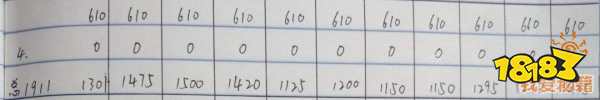 610 610 610 610 610 610 610 610 610 610
4. 0 0 0 0 0 0 0 0 0
1911 1475 1500 1420 1125 1200 1150 1150 1295
18183
我爱秘籍